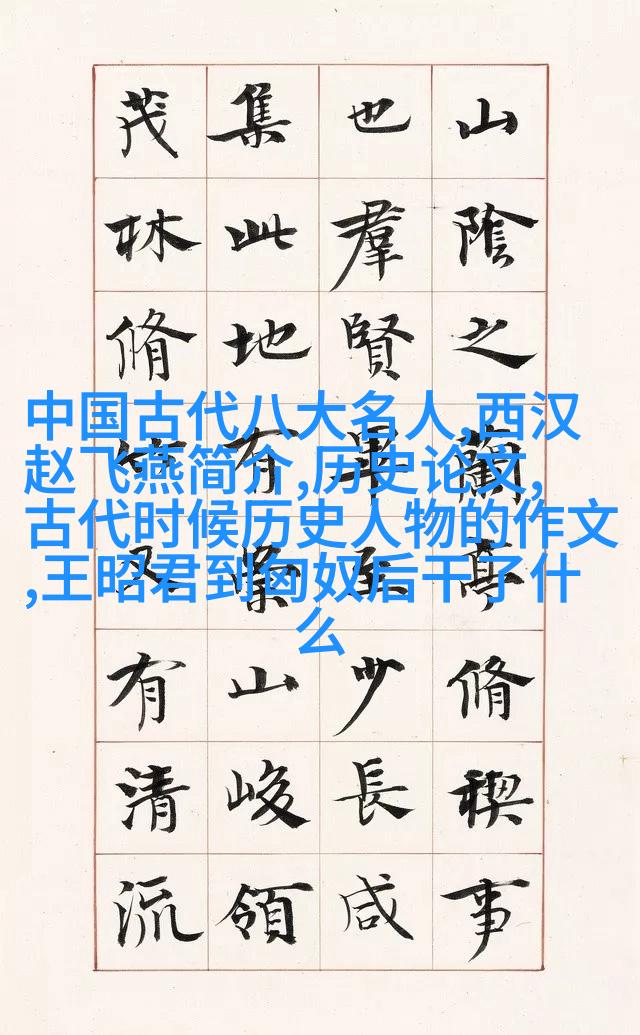 山陰之蘭亭脩稧事
也羣賢畢至少長咸
集此地有崇山峻領
茂林脩竹又有清流
中国古代八大名人,西汉
赵飞燕简介,历史论文,
古代时候历史人物的作文
,王昭君到匈奴后干了什
么